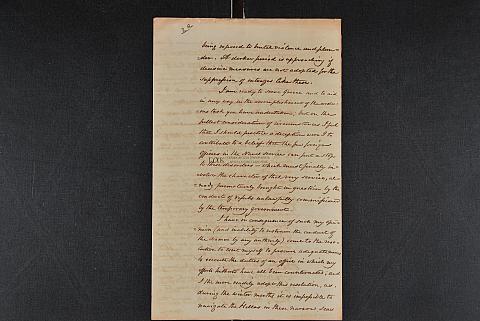 being exposed to brutal violence and plun-
der. A darker period is approaching if
decisive measures are not adopted for the
suppression of outrages like these.
I am ready to serve Greece and to aid
in any way in the accomplishment of the ardu-
ous task you have undertaken; but on the
fullest consideration of circumstances I feel
that I should practice a deception were I to
contribute to a belief that the few foreign
Officers in the Naval service can put a stop
to these disorders – which must finally in-
volve the character of that very service, al-
ready prematurely brought in question by the
conduct of vessels unlawfully commissioned
by the temporary government.
I have in consequence of such my opi-
nion (and inability to restrain the conduct of
the by any authority) come to the reso-
lution to exert myself to procure adequate means
to execute the duties of an office in which my
efforts hitherto have all been counteracted; and
I the more readily adopt this resolution, as,
during the winter months it is impossible to
navigate the Hellas in these narrow seas